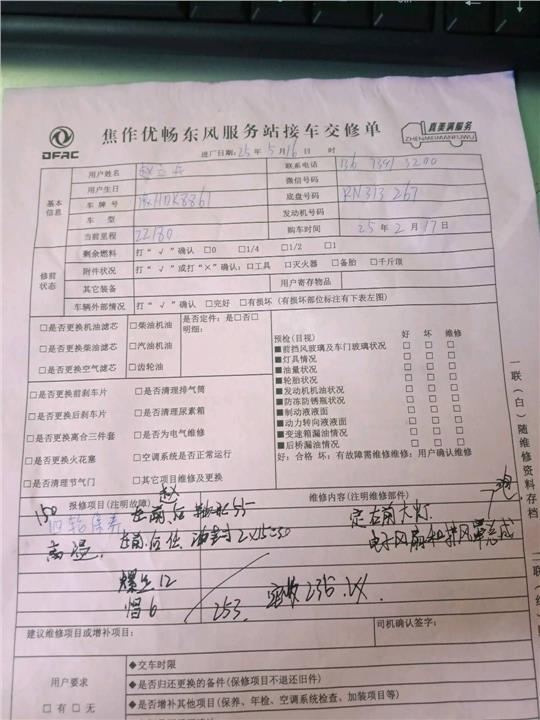 DFAC
焦作优畅东风服务站接车交修单
真美满服务
ZHENMEIMANFUWU
进厂日期:25年5月16日 时
基本信息
用户姓名 联系电话
用户生日 微信号码
车牌号 豫HDK8861 底盘号码 RN313267
车型 发动机号码
当前里程 22180 购车时间 25年2月17日
修前状态
剩余燃料 打“√”确认 □0 □1/4 □1/2 □1
附件状况 打“√”或打“×”确认:□工具 □灭火器 □备胎 □千斤顶
其它装备 用户寄存物品
车辆外部情况 打“√”确认 □完好 □有损坏(有损坏部位标注有下表左图)
□是否更换机油滤芯 □柴油机油 是否定件:是□否□
明细:
□是否更换柴油滤芯 □汽油机油
□是否更换空气滤芯 □齿轮油
□是否更换前刹车片 □是否清理排气筒
□是否更换后刹车片 □是否清理尿素箱
□是否更换离合三件套 □是否为电气维修
□是否更换火花塞 □空调系统是否正常运行
□是否清理节气门 □其它项目维修及更换
预检(目视) 好 坏 维修
■前挡风玻璃及车门玻璃状况 □ □ □
■灯具情况 □ □ □
■油量状况 □ □ □
■轮胎状况 □ □ □
■发动机机油状况 □ □ □
■防冻防锈瓶状况 □ □ □
■制动液液面 □ □ □
■动力转向液液面 □ □ □
■变速箱漏油情况 □ □ □
■后桥漏油情况 □ □ □
好:合格 坏:有故障需维修维修:用户确认维修
一联(白)随维修资料存档
报修项目(注明故障) 赵 维修内容(注明维修部件)
150 四轮保养 定左前大灯
高温 油封2×15=30 电子风扇和护风罩总成
螺丝12
帽6
253
建议维修项目或增补项目: 司机确认签字:
用户要求
□有□无
◆交车时限
◆是否归还更换的备件(保修项目不退还旧件)
◆是否增补其他项目(保养、年检、空调系统检查、加装项目等)